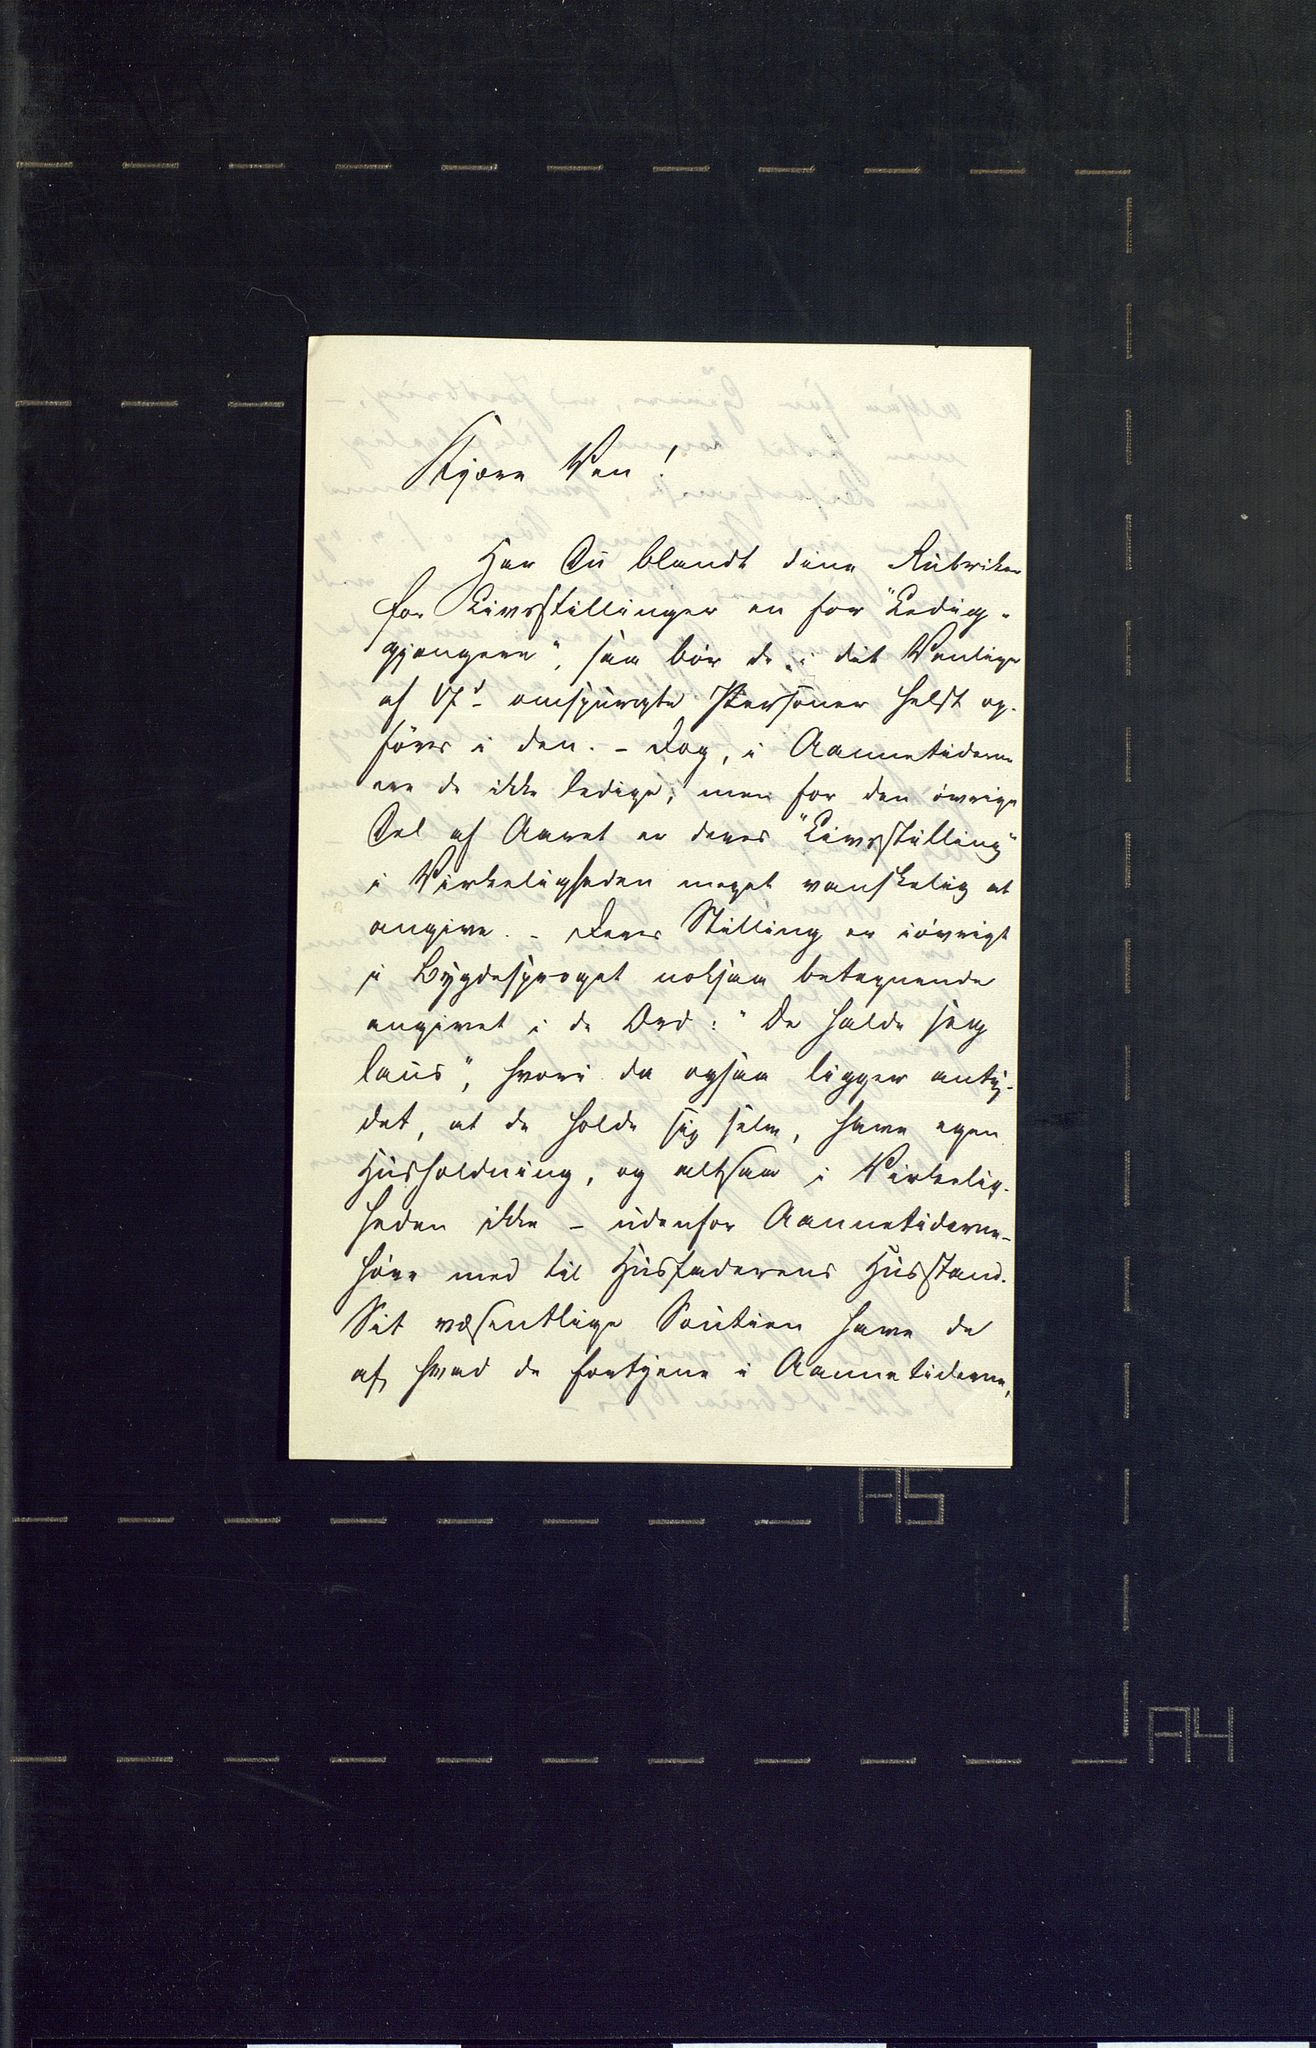 Kjære Ven!
Har Du blandt dine Rubriker
for Livsstillinger en for "Ledig-
gjængere", saa bör de i dit Venlige
af 17d omspurgte Personer helst op-
föres i den. - Dog, i Aannetiderne
ere de ikke ledige; men for den övrige
Del af Aaret er deres "Livsstilling"
i Virkeligheden meget vanskelig at
angive. - Deres Stilling er iövrigt
i Bygdesproget noksaa betegnende
angivet i de Ord: "De halde seg
laus", hvori da ogsaa ligger anty-
det, at de holde sig selv, have egen
Husholdning, og altsaa i Virkelig-
heden ikke - udenfor Aannetiderne -
höre med til Husfaderens Husstand.
Sit væsentlige Soutien have de
af, hvad de fortjene i Aannetiderne,
A5
A4